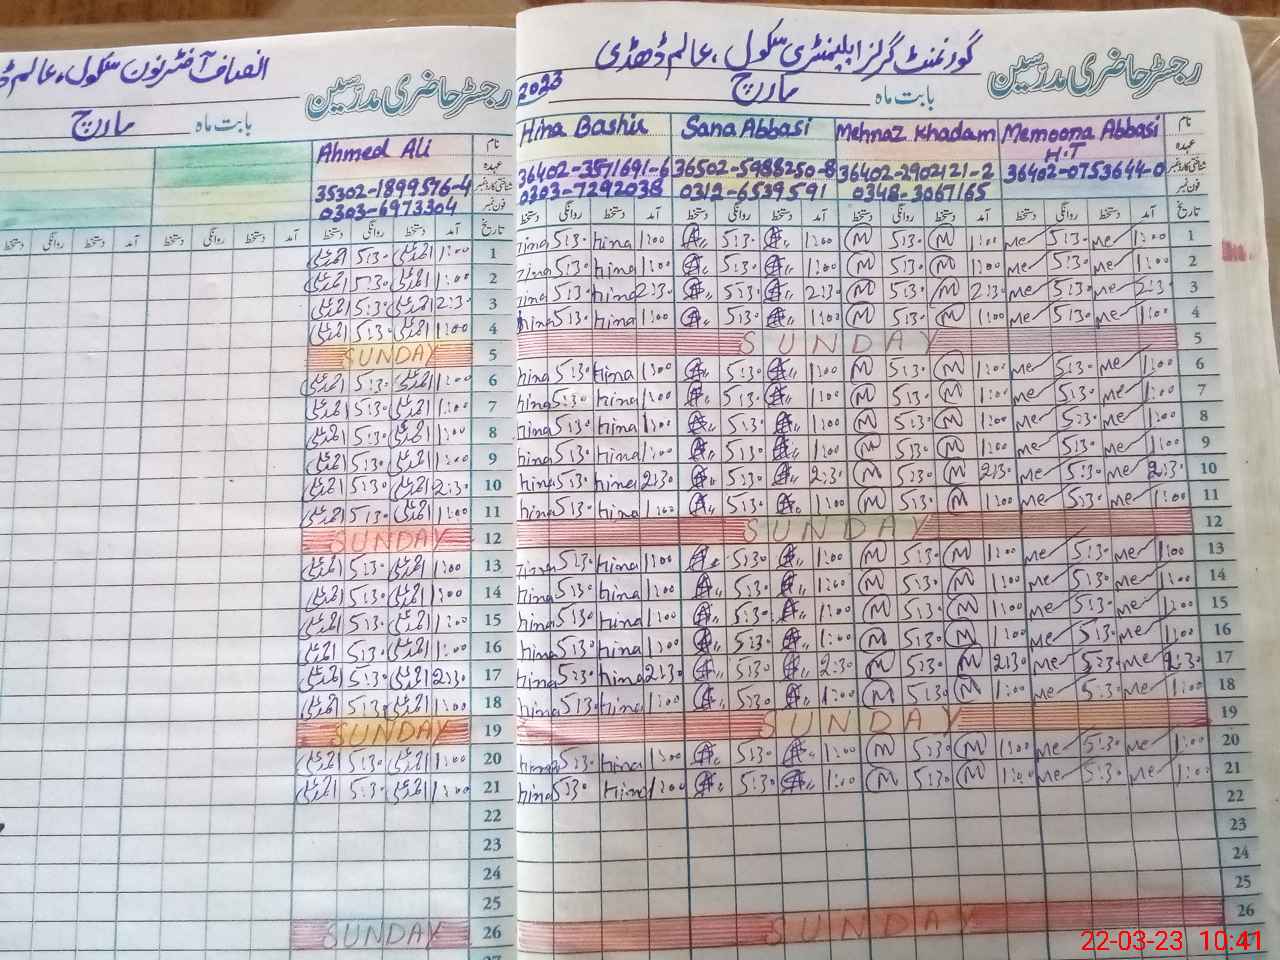 گورنمنٹ گرلز ایلیمنٹری سکول، عالم ڈھڈی
رجسٹر حاضری مدرسین
بابت ماہ مارچ 2023
نام Hina Bashir Sana Abbasi Mehnaz Khadam Memoona Abbasi
عہدہ H.T
شناختی کارڈ نمبر 36402-3571691-6 36502-5988250-8 36402-2902121-2 36402-0753644-0
فون نمبر 0303-7292038 0312-6539591 0348-3067165
تاریخ آمد دستخط روانگی دستخط آمد دستخط روانگی دستخط آمد دستخط روانگی دستخط آمد دستخط روانگی دستخط
5:30 hina 1:00 5:30 1:00 M 5:30 M 1:00 me 5:30 me 1:00 1
5:30 hina 1:00 5:30 1:00 M 5:30 M 1:00 me 5:30 me 1:00 2
5:30 hina 2:30 5:30 2:30 M 5:30 M 2:30 me 5:30 me 2:30 3
hina 5:30 hina 1:00 5:30 1:00 M 5:30 M 1:00 me 5:30 me 1:00 4
SUNDAY 5
hina 5:30 hina 1:00 5:30 1:00 M 5:30 M 1:00 me 5:30 me 1:00 6
hina 5:30 hina 1:00 5:30 1:00 M 5:30 M 1:00 me 5:30 me 1:00 7
hina 5:30 hina 1:00 5:30 1:00 M 5:30 M 1:00 me 5:30 me 1:00 8
hina 5:30 hina 1:00 5:30 1:00 M 5:30 M 1:00 me 5:30 me 1:00 9
hina 5:30 hina 2:30 5:30 2:30 M 5:30 M 2:30 me 5:30 me 2:30 10
hina 5:30 hina 1:00 5:30 1:00 M 5:30 M 1:00 me 5:30 me 1:00 11
SUNDAY 12
5:30 hina 1:00 5:30 1:00 M 5:30 M 1:00 me 5:30 me 1:00 13
hina 5:30 hina 1:00 5:30 1:00 M 5:30 M 1:00 me 5:30 me 1:00 14
hina 5:30 hina 1:00 5:30 1:00 M 5:30 M 1:00 me 5:30 me 1:00 15
hina 5:30 hina 1:00 5:30 1:00 M 5:30 M 1:00 me 5:30 me 1:00 16
hina 5:30 hina 2:30 5:30 2:30 M 5:30 M 2:30 me 5:30 me 2:30 17
hina 5:30 hina 1:00 5:30 1:00 M 5:30 M 1:00 me 5:30 me 1:00 18
SUNDAY 19
hina 5:30 hina 1:00 5:30 1:00 M 5:30 M 1:00 me 5:30 me 1:00 20
hina 5:30 hina 1:00 5:30 1:00 M 5:30 M 1:00 me 5:30 me 1:00 21
22
23
24
25
SUNDAY 26
انصاف آفٹرنون سکول، عالم
رجسٹر حاضری مدرسین
بابت ماہ مارچ
نام Ahmed Ali
عہدہ
شناختی کارڈ نمبر 35302-1899576-4
فون نمبر 0303-6973304
تاریخ آمد دستخط روانگی دستخط آمد دستخط روانگی دستخط آمد دستخط روانگی دستخط
احمد علی 5:30 احمد علی 1:00 1
احمد علی 5:30 احمد علی 1:00 2
احمد علی 5:30 احمد علی 2:30 3
احمد علی 5:30 احمد علی 1:00 4
SUNDAY 5
احمد علی 5:30 احمد علی 1:00 6
احمد علی 5:30 احمد علی 1:00 7
احمد علی 5:30 احمد علی 1:00 8
احمد علی 5:30 احمد علی 1:00 9
احمد علی 5:30 احمد علی 2:30 10
احمد علی 5:30 احمد علی 1:00 11
SUNDAY 12
احمد علی 5:30 احمد علی 1:00 13
احمد علی 5:30 احمد علی 1:00 14
احمد علی 5:30 احمد علی 1:00 15
احمد علی 5:30 احمد علی 1:00 16
احمد علی 5:30 احمد علی 2:30 17
احمد علی 5:30 احمد علی 1:00 18
SUNDAY 19
احمد علی 5:30 احمد علی 1:00 20
احمد علی 5:30 احمد علی 1:00 21
22
23
24
25
SUNDAY 26
22-03-23 10:41